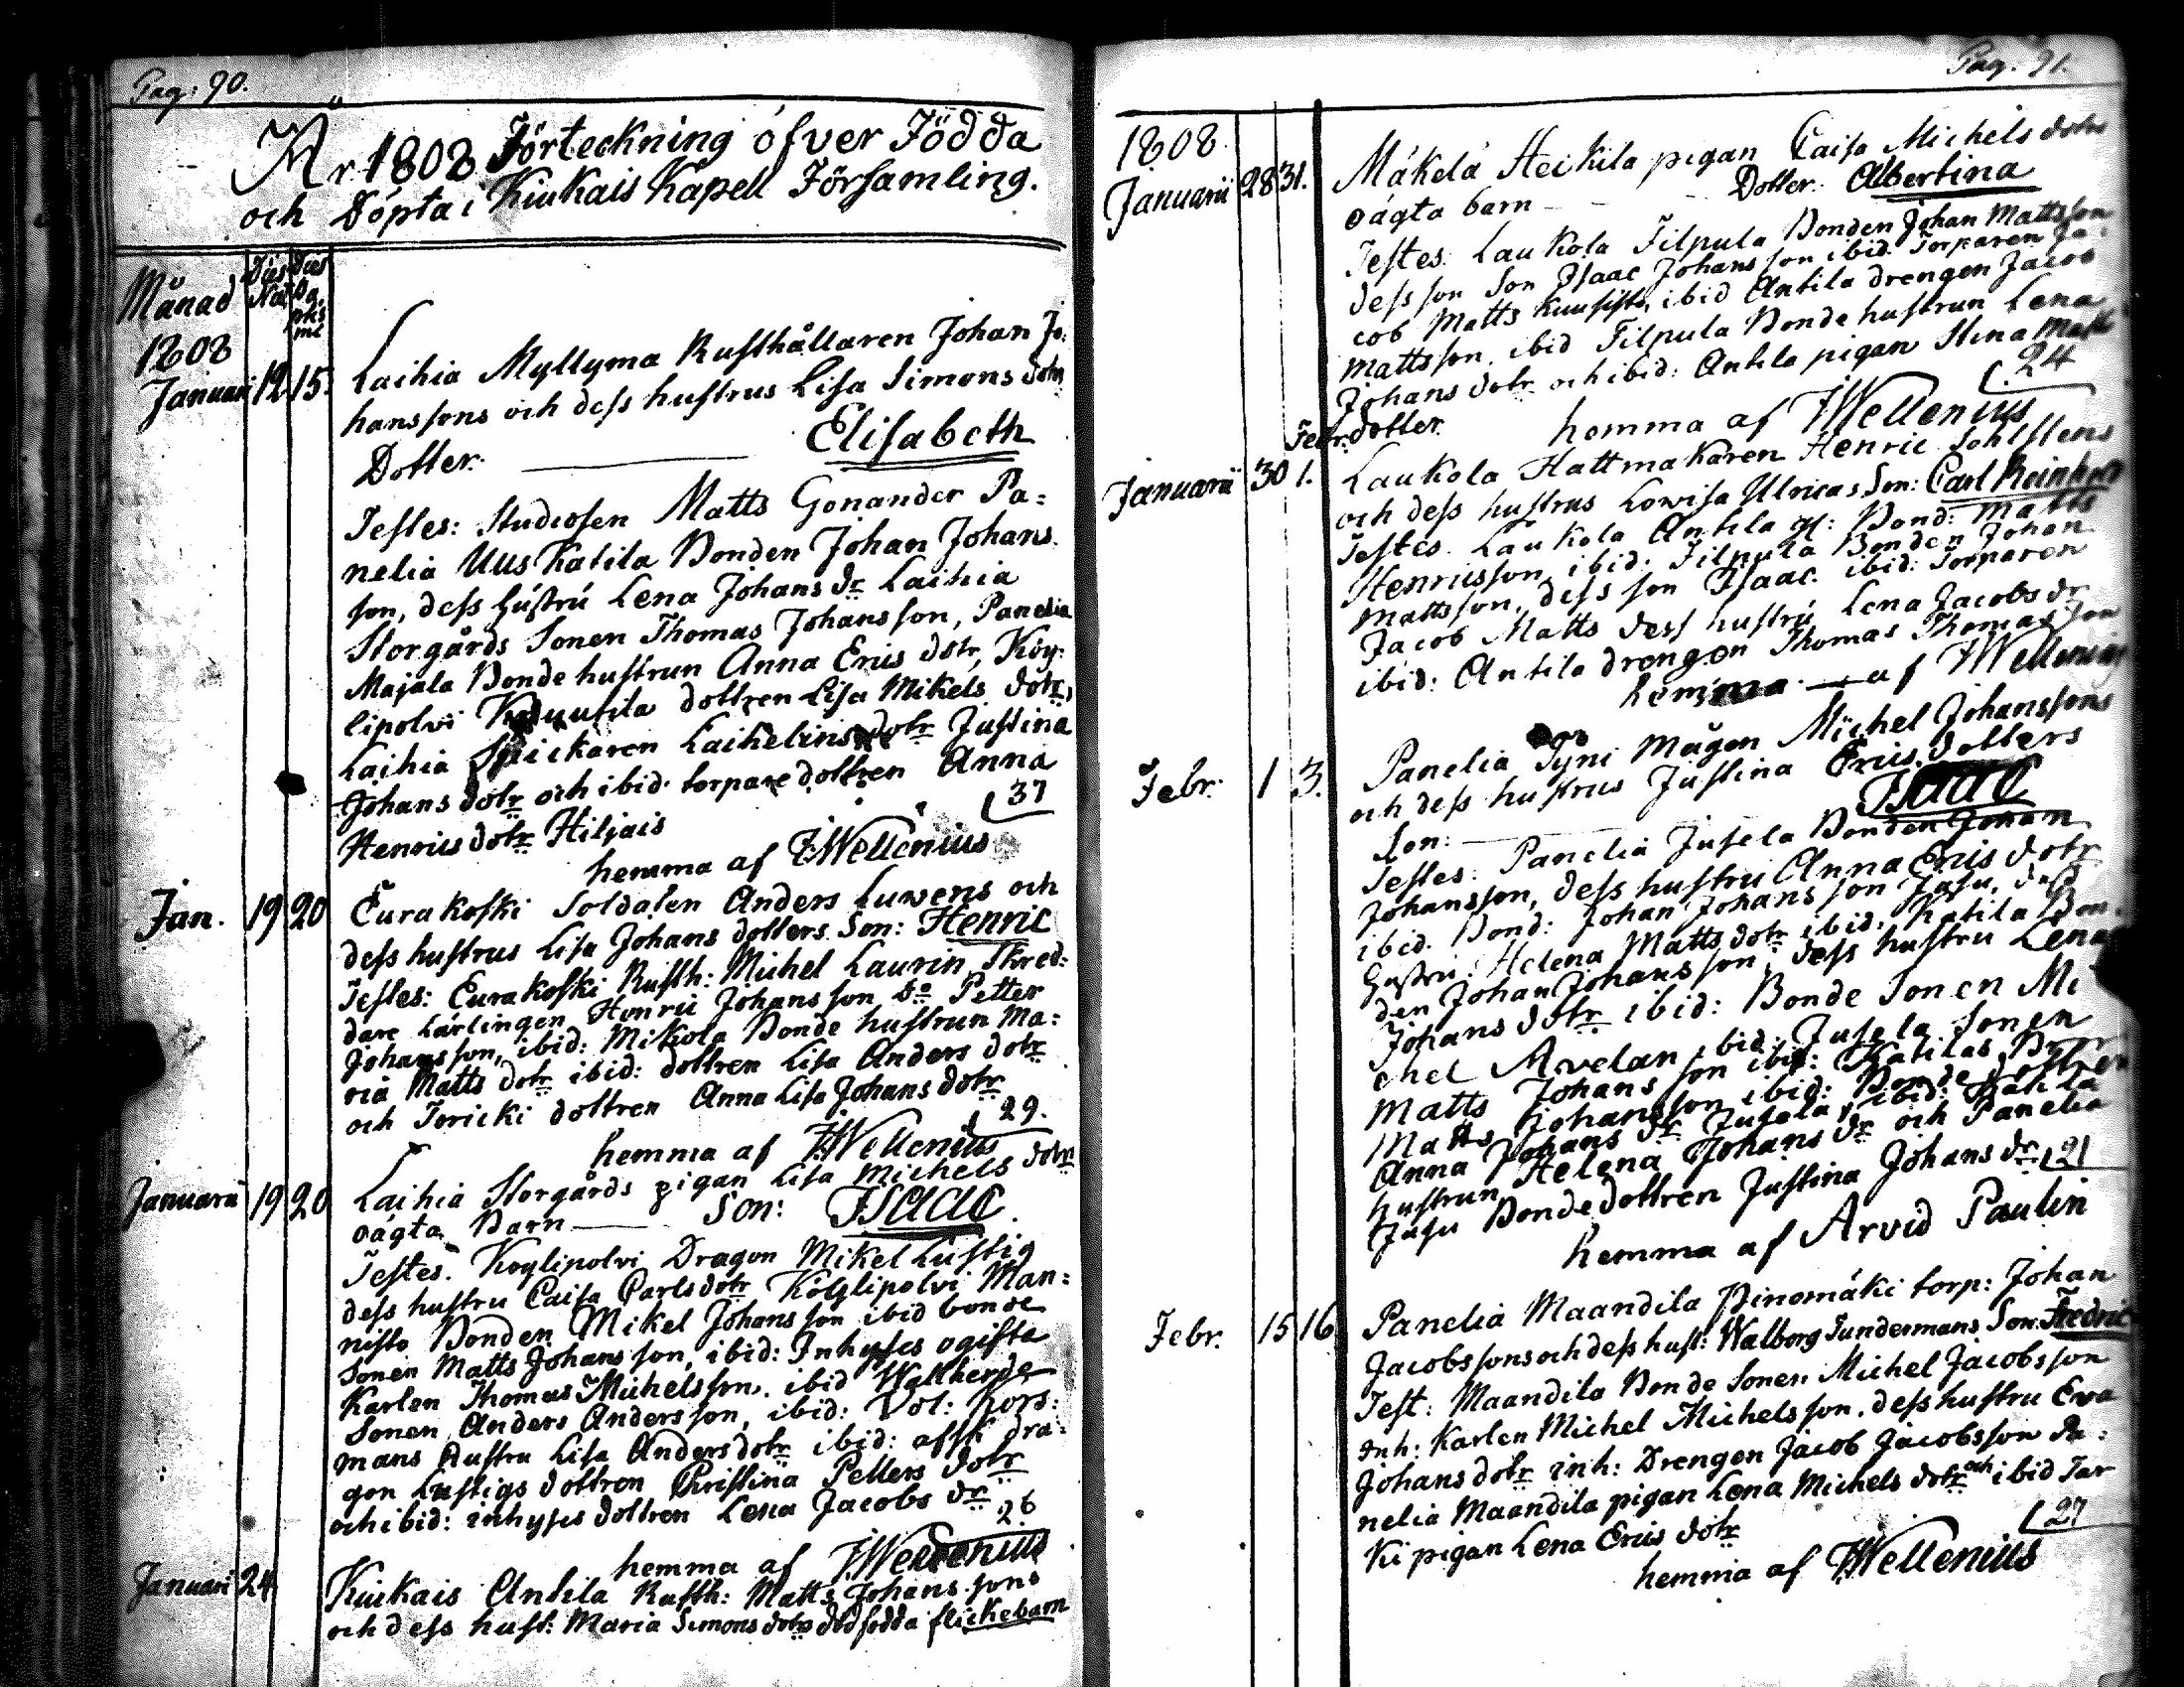 Pag: 90.
Åhr 1808 Förteckning öfver Födda
och Döpta i Kiukais Kapell Församling.
Månad Dies Nat Dies
1808
Januari 12 15. Laihia Myllymä Rusthållaren Johan Jo:
hanssons och dess hustrus Lisa Simons dotr
Dotter. Elisabeth
Testes: Studiosen Matts Gonander Pa=
nelia Uus Katila Bonden Johan Johans
son, dess hustru Lena Johans dr Laihia
Storgårds Sonen Thomas Johansson, Panelia
Majala Bonde hustrun Anna Erics dotr, Köy:
lipolvi dottren Lisa Mikels dotr,
Laihia Laihelins dotr Justina
Johans dotr och ibid. torpare dottren Anna
Henrics dotr Hiljais 37
hemma af FWellenius
Jan. 19 20 Eurakoski Soldaten Anders Luwens och
dess hustrus Lisa Johans dotters. Son: Henric
Testes: Eurakoski Rusth: Michel Laurin, Skred:
dare Lärlingen Henric Johansson, do Petter
Johansson, ibid: Mikola Bonde hustrun Ma:
ria Matts dotr ibid: dottren Lisa Anders dotr
och Toricki dottren Anna Lisa Johans dotr
29.
hemma af FWellenius
Januarii 19 20 Laihia Storgårds pigan Lisa Michels dotrs
oägta Barn Son: Isaac
Testes. Köylipolvi Dragon Mikel Lustig
dess hustru Caisa Carlsdotr Köylipolvi Man=
nisto Bonden Mikel Johansson ibid bonde
Sonen Matts Johansson, ibid: Inhyses ogifta
Karlen Thomas Michelsson. ibid Wallherde
Sonen Anders Andersson, ibid: Vol: Kors:
mans Hustru Lisa Andersdotr ibid: afsk dra:
gon Lustigs dottren Christina Petters dotr
och ibid: inhyses dottren Lena Jacobs dr
26
hemma af FWellenius
Januari 24 Kiukais Antila Rusth: Matts Johanssons
och dess hust: Maria Simons dotrs dödfödda flickebarn
Pag. 91.
1808.
Januarii 28 31. Mäkelä Heikila pigan Caisa Michels dotrs
oägta barn Dotter: Albertina
Testes: Laukola Filpula Bonden Johan Mattsson
dess son Son Isaac Johansson ibid Torparen Ja:
cob Matts Kuusisto, ibid Antila drengen Jacob
Mattsson. ibid Filpula Bonde hustrun Lena
Johans dotr och ibid: Antila pigan Stina Matts
dotter. 24
hemma af FWellenius
Febr.
Januarii 30 1. Laukola Hattmakaren Henric Sohlstens
och dess hustrus Lowisa Ulricas Son: Carl Reinhold
Testes. Laukola Antila gl: Bond: Matts
Henricsson, ibid: Filpula Bonden Johan
Mattsson, dess son Isaac. ibid: Torparen
Jacob Matts dess hustru, Lena Jacobs dr
ibid: Antila drengen Thomas Thomasson
hemma af FWellenius
Febr. 1 3. Panelia Tyni Mågen Michel Johanssons
och dess hustrus Justina Erics dotters
Son: Isaac
Testes: Panelia Jusela Bonden Johan
Johansson, dess hustru Anna Erics dotr
ibid. Bond: Johan Johansson Jusu, dess
Hustru: Helena Matts dotr ibid: Katila Bon
den Johan Johansson, dess hustru Lena
Johans dotr ibid: Bonde Sonen Mi
chel Avelan, ibid: Jusela Sonen
Matts Johansson ibid: Katilas
Matts Johansson ibid: Bonde dottren
Anna Johans dr Jusela, ibid: Katila
hustrun Helena Johans dr och Panelia
Jusu Bonde dottren Justina Johans dr 21
hemma af Arvid Paulin
Febr. 15 16 Panelia Maandila Pinomäki torp: Johan
Jacobssons och dess hust: Walborg Sundermans Son. Fredric
Test: Maandila Bonde Sonen Michel Jacobsson
inh: Karlen Michel Michelsson. dess hustru Eva
Johans dotr inh: Drengen Jacob Jacobsson Pa:
nelia Maandila pigan Lena Michels dotr och ibid Jar
ki pigan Lena Erics dotr 27
hemma af FWellenius